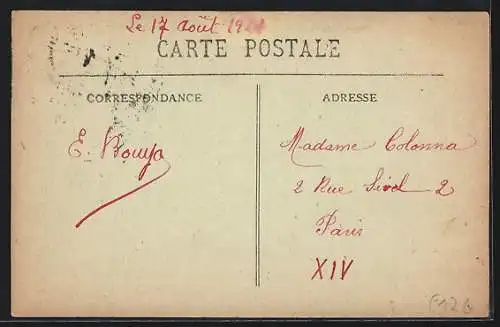 Le 17 août
CARTE POSTALE
CORRESPONDANCE
ADRESSE
E.
Madame Colonna
2 Rue Sivel 2
Paris
XIV